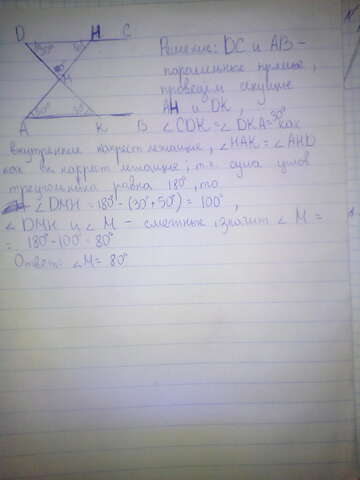 D H C
30° 50°
80°
M
50° 30°
A K B
Решение: DC и AB –
параллельные прямые,
проведём секущие
AH и DK,
∠CDK = ∠DKA = 30° как
внутренние накрест лежащие, ∠HAK = ∠AHD
как вн. накрест лежащие; т.к. сума углов
треугольника равна 180°, то
∠DMH = 180° - (30° + 50°) = 100°,
∠DMH и ∠M – смежные, значит ∠M =
= 180° - 100° = 80°
Ответ: ∠M = 80°